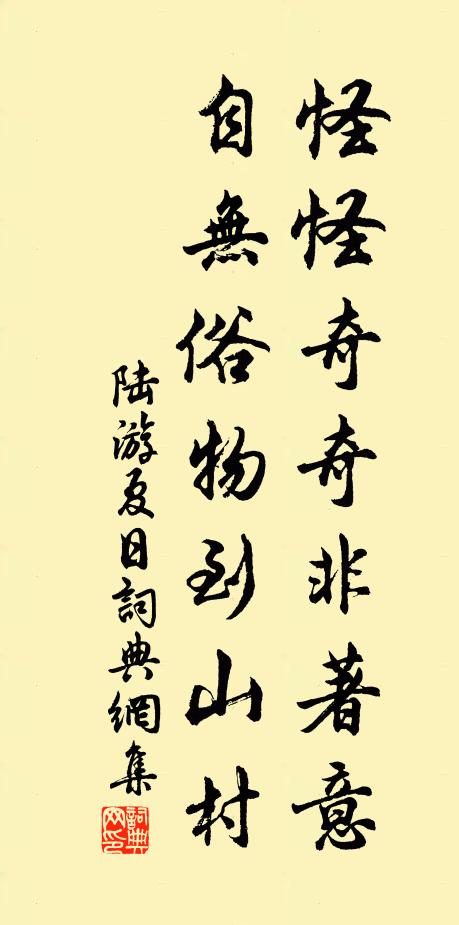 怪怪奇奇非著意
自無俗物到山村
陆游夏日詞典網集
詞典网印